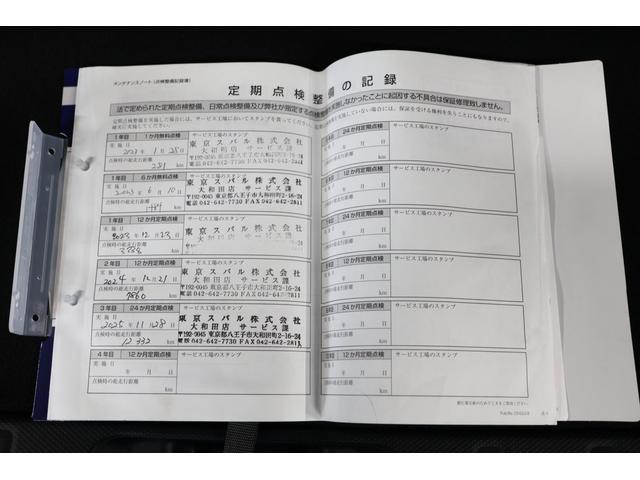 メンテナンスノート(点検整備記録簿)
定期点検整備の記録
法で定められた定期点検整備、日常点検整備及び弊社が指定する点検
を実施しなかったことに起因する不具合は保証修理致しません。
1年目 1か月無料点検 サービス工場のスタンプ
実施日 2023年1月25日
東京スバル株式会社
大和田店 サービス課
〒192-0045 東京都八王子市大和田町2-16-24
電話 042-642-7730 FAX 042-642-2811
点検時の総走行距離 km
1年目 6か月無料点検 サービス工場のスタンプ
実施日 2023年6月10日
東京スバル株式会社
大和田店 サービス課
〒192-0045 東京都八王子市大和田町2-16-24
電話 042-642-7730 FAX 042-642-2811
点検時の総走行距離 1484 km
1年目 12か月定期点検 サービス工場のスタンプ
実施日 2023年12月23日
東京スバル株式会社
大和田店 サービス課
点検時の総走行距離 km
2年目 12か月定期点検 サービス工場のスタンプ
実施日 2024年12月21日
東京スバル株式会社
大和田店 サービス課
〒192-0045 東京都八王子市大和田町2-16-24
電話 042-642-7730 FAX 042-642-2811
点検時の総走行距離 7860 km
3年目 24か月定期点検 サービス工場のスタンプ
実施日 2025年11月28日
東京スバル株式会社
大和田店 サービス課
〒192-0045 東京都八王子市大和田町2-16-24
電話 042-642-7730 FAX 042-642-2811
点検時の総走行距離 12332 km
4年目 12か月定期点検 サービス工場のスタンプ
実施日 年 月 日
点検時の総走行距離 km
24か月定期点検 サービス工場のスタンプ
年 月 日
km
12か月定期点検 サービス工場のスタンプ
年 月 日
km
24か月定期点検 サービス工場のスタンプ
年 月 日
km
12か月定期点検 サービス工場のスタンプ
年 月 日
km
24か月定期点検 サービス工場のスタンプ
年 月 日
km
12か月定期点検 サービス工場のスタンプ
年 月 日
km